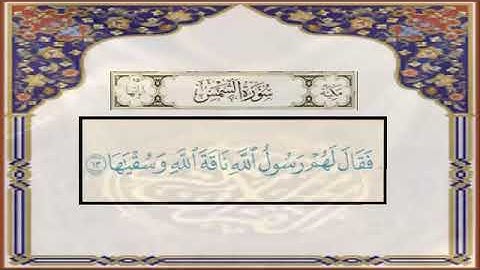 مكية سورة الشمس آياتها
فَقَالَ لَهُمْ رَسُولُ ٱللَّهِ نَاقَةَ ٱللَّهِ وَسُقْيَـٰهَا ١٣